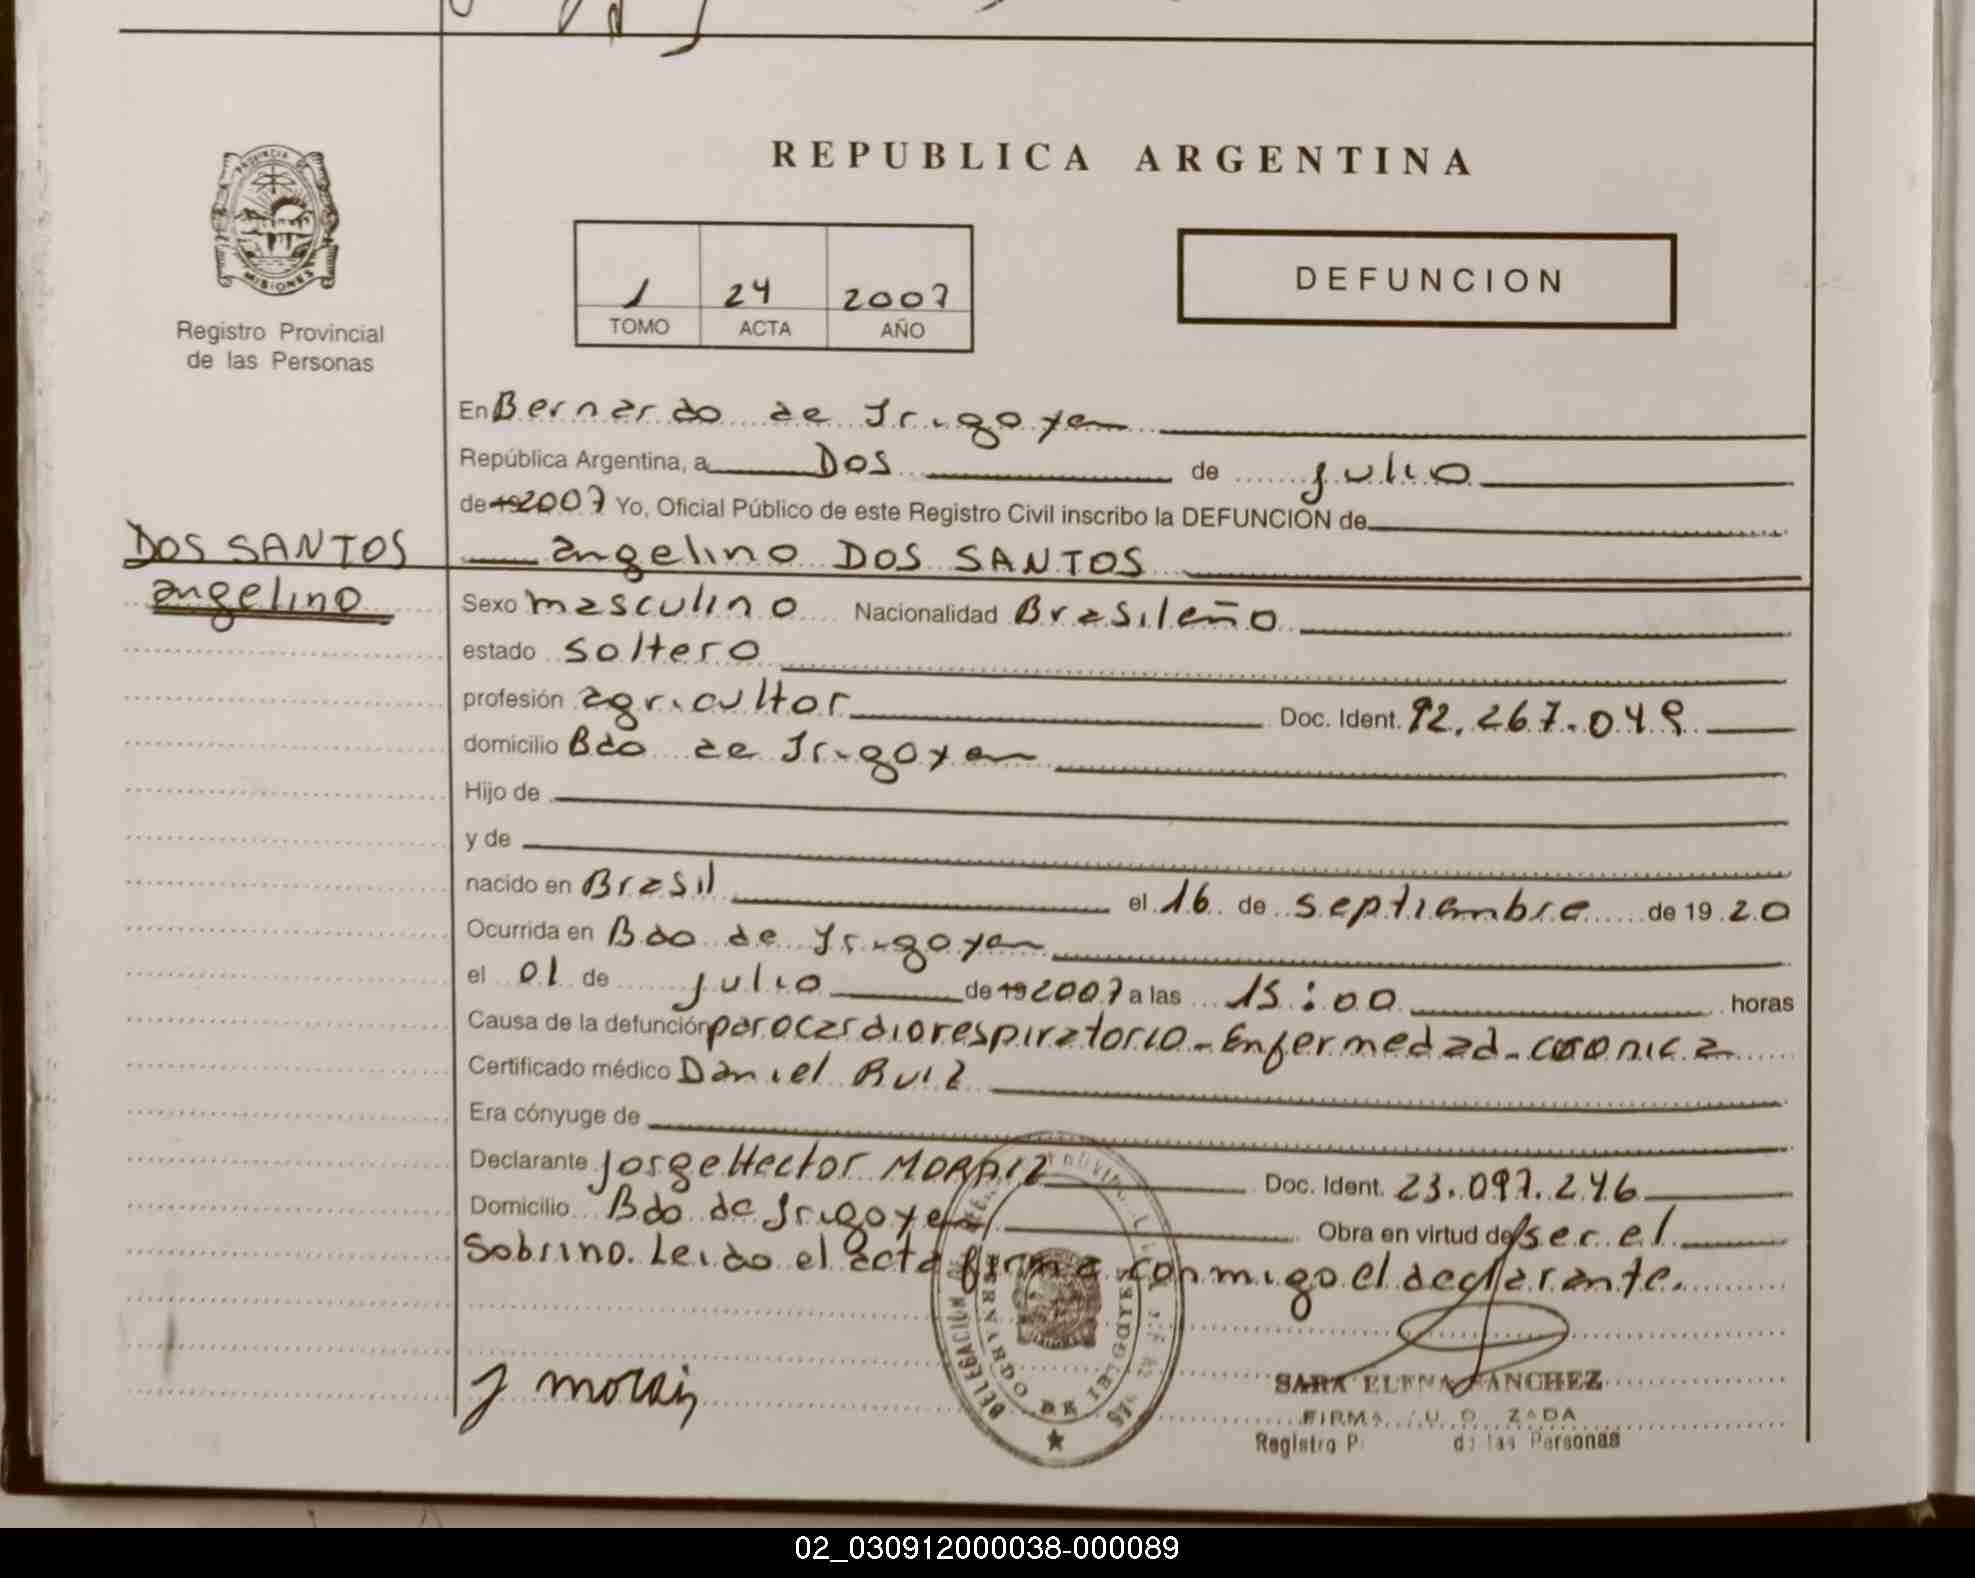 REPUBLICA ARGENTINA
PROVINCIA DE
MISIONES
Registro Provincial
de las Personas
1 24 2007
TOMO ACTA AÑO
DEFUNCION
En Bernardo de Irigoyen
República Argentina, a Dos de julio
de 19 2007 Yo, Oficial Público de este Registro Civil inscribo la DEFUNCION de
DOS SANTOS
angelino
angelino DOS SANTOS
Sexo masculino Nacionalidad Brasileño
estado soltero
profesión agricultor Doc. Ident. 92.267.049
domicilio Bdo de Irigoyen
Hijo de
y de
nacido en Brasil el 16 de septiembre de 19 20
Ocurrida en Bdo de Irigoyen
el 01 de julio de 19 2007 a las 15:00 horas
Causa de la defunción parocardiorespiratorio - Enfermedad - coronica
Certificado médico Daniel Ruiz
Era cónyuge de
Declarante Jorge Hector MORAIZ Doc. Ident. 23.097.246
Domicilio Bdo de Irigoyen Obra en virtud de ser el
Sobrino. Leido el acta firma conmigo el declarante.
J morais
DELEGACION
BERNARDO DE IRIGOYEN
SARA ELENA SANCHEZ
FIRMA
Registro de las Personas
02_030912000038-000089